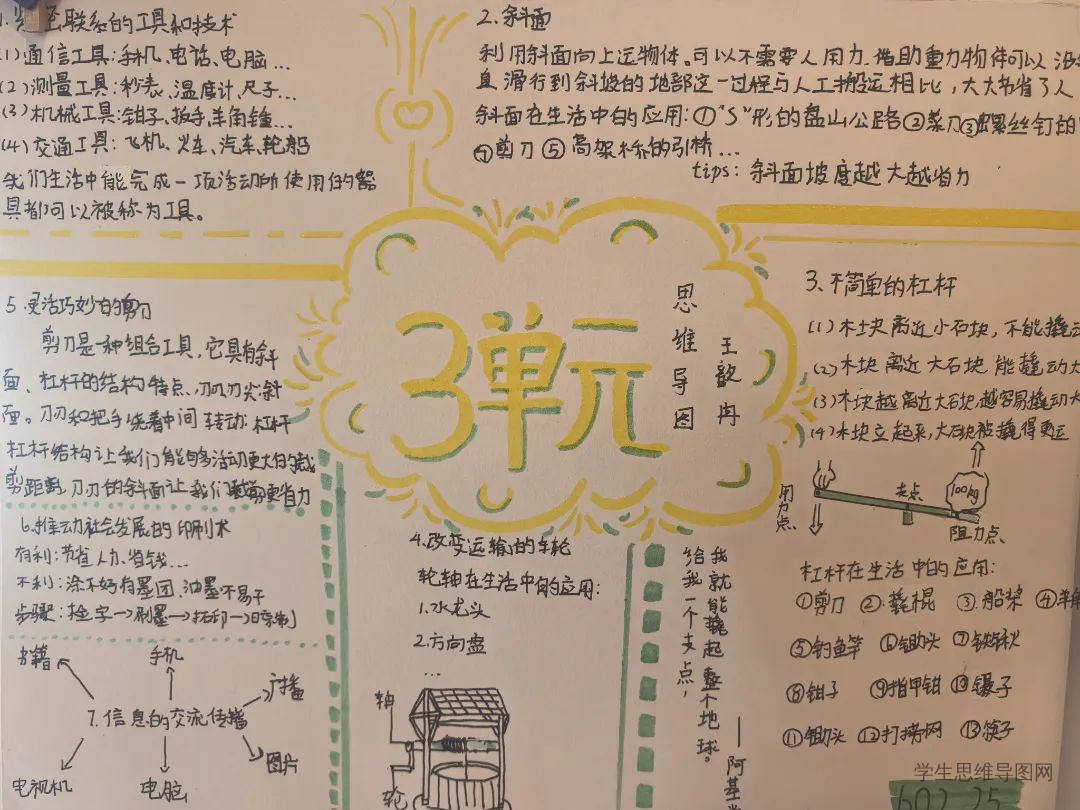 紧密联系的工具和技术
(1)通信工具:手机、电话、电脑...
(2)测量工具:秒表、温度计、尺子...
(3)机械工具:钳子、扳手、羊角锤...
(4)交通工具:飞机、火车、汽车、轮船
我们生活中能完成一项活动所使用的器
具都可以被称为工具。
2.斜面
利用斜面向上运物体。可以不需要人用力.借助重力物件可以 沿
直滑行到斜坡的地部这一过程与人工搬运相比,大大节省了人
斜面在生活中的应用:①"S"形的盘山公路②菜刀③螺丝钉的
④剪刀 ⑤高架桥的引桥...
tips:斜面坡度越大越省力
3单元
思维导图
王歆冉
3.不简单的杠杆
(1)木块离近小石块,不能撬动
(2)木块离近大石块 能撬动大
(3)木块越离近大石块,越容易撬动大
(4)木块立起来,大石块被撬得更远
用力点
支点
100kg
阻力点
杠杆在生活中的应用:
①剪刀 ②撬棍 ③船桨 ④羊角
⑤钓鱼竿 ⑥锄头 ⑦铁锹
⑧钳子 ⑨指甲钳 ⑩镊子
⑪锄头 ⑫打捞网 ⑬筷子
5.灵活巧妙的剪刀
剪刀是一种组合工具,它具有斜
面、杠杆的结构特点、刀刃刀尖斜
面。刀刃和把手绕着中间转动:杠杆
杠杆结构让我们能够活动更大的裁
剪距离,刀刃的斜面让我们裁剪更省力
6.推动社会发展的印刷术
有利:节省人力、省钱...
不利:涂不好有墨团,油墨不易干
步骤:检字→刷墨→拓印→晾制
书籍
手机
广播
7.信息的交流传播
图片
电视机
电脑
4.改变运输的车轮
轮轴在生活中的应用:
1.水龙头
2.方向盘
...
轴
轮
给我一个支点,
我就能撬起整个地球。
——阿基米
学生思维导图网